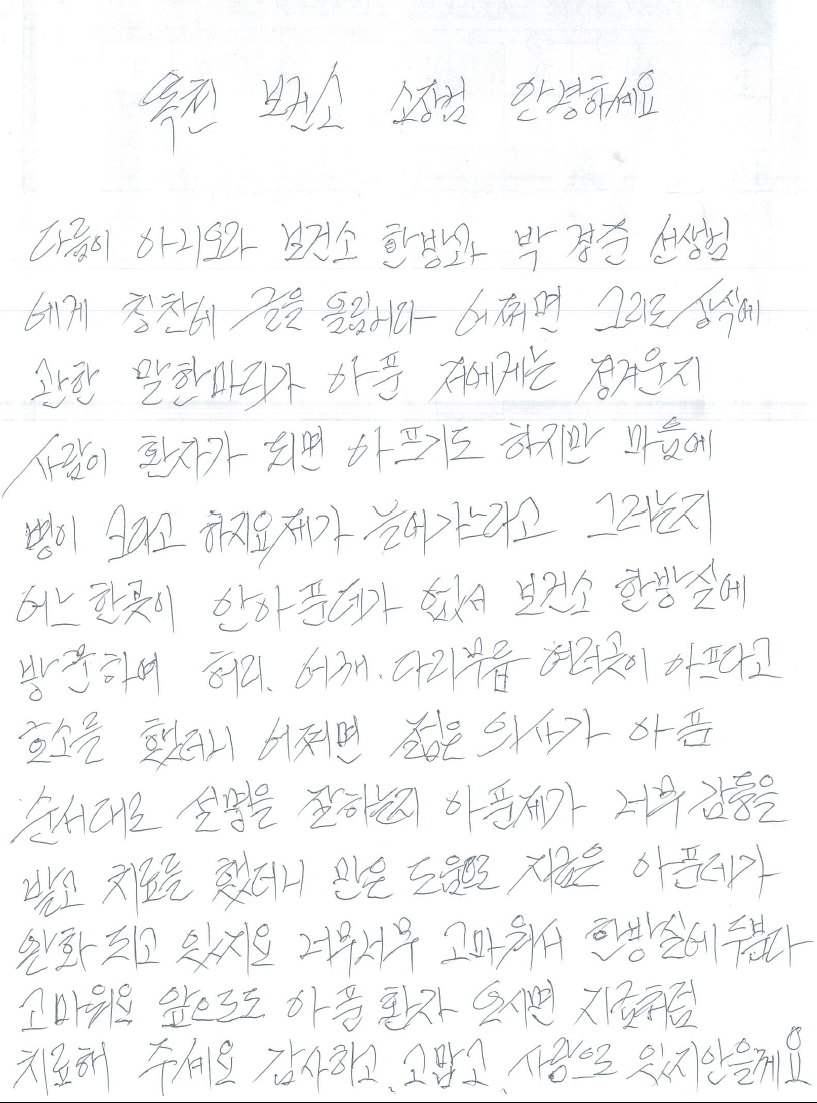 옥천 보건소 소장님 안녕하세요
다름이 아니오라 보건소 한방과 박 경준 선생님
에게 칭찬에 글을 올립니다 어쩌면 그리도 상식에
관한 말한마디가 아픈 저에게는 정겨운지
사람이 환자가 되면 아프기도 하지만 마음에
병이 크다고 하지요 제가 늙어가느라고 그러는지
어느 한곳이 안아픈데가 없서 보건소 한방실에
방문하여 허리. 어깨. 다리무릎 여러곳이 아프다고
호소를 했더니 어쩌면 젊은 의사가 아픈
순서대로 설명을 잘하는지 아픈제가 너무 감동을
받고 치료를 했더니 많은 도움으로 지금은 아픈데가
완화 되고 있지요 너무너무 고마워서 한방실에 두분다
고마워요 앞으로도 아픈 환자 오시면 지금처럼
치료해 주세요 감사하고, 고맙고, 사랑으로 잊지안을게요